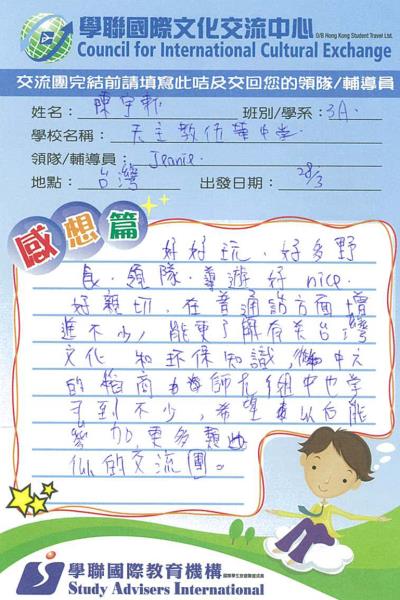 學聯國際文化交流中心
O/B Hong Kong Student Travel Ltd.
Council for International Cultural Exchange
交流團完結前請填寫此咭及交回您的領隊/輔導員
姓名：陳宇軒 班別/學系：3A.
學校名稱：天主教伍華中學.
領隊/輔導員：Jeanie.
地點：台灣 出發日期：28/3
感想篇
好好玩，好多野
食，領隊，導游好nice.
好親切，在普通話方面增
進不少，能更了解有关台灣
文化 知环保知識，中文
的 商 師在 中也学
到不少，希望以后能
參加更多類
似的交流團。
學聯國際教育機構
Study Advisers International